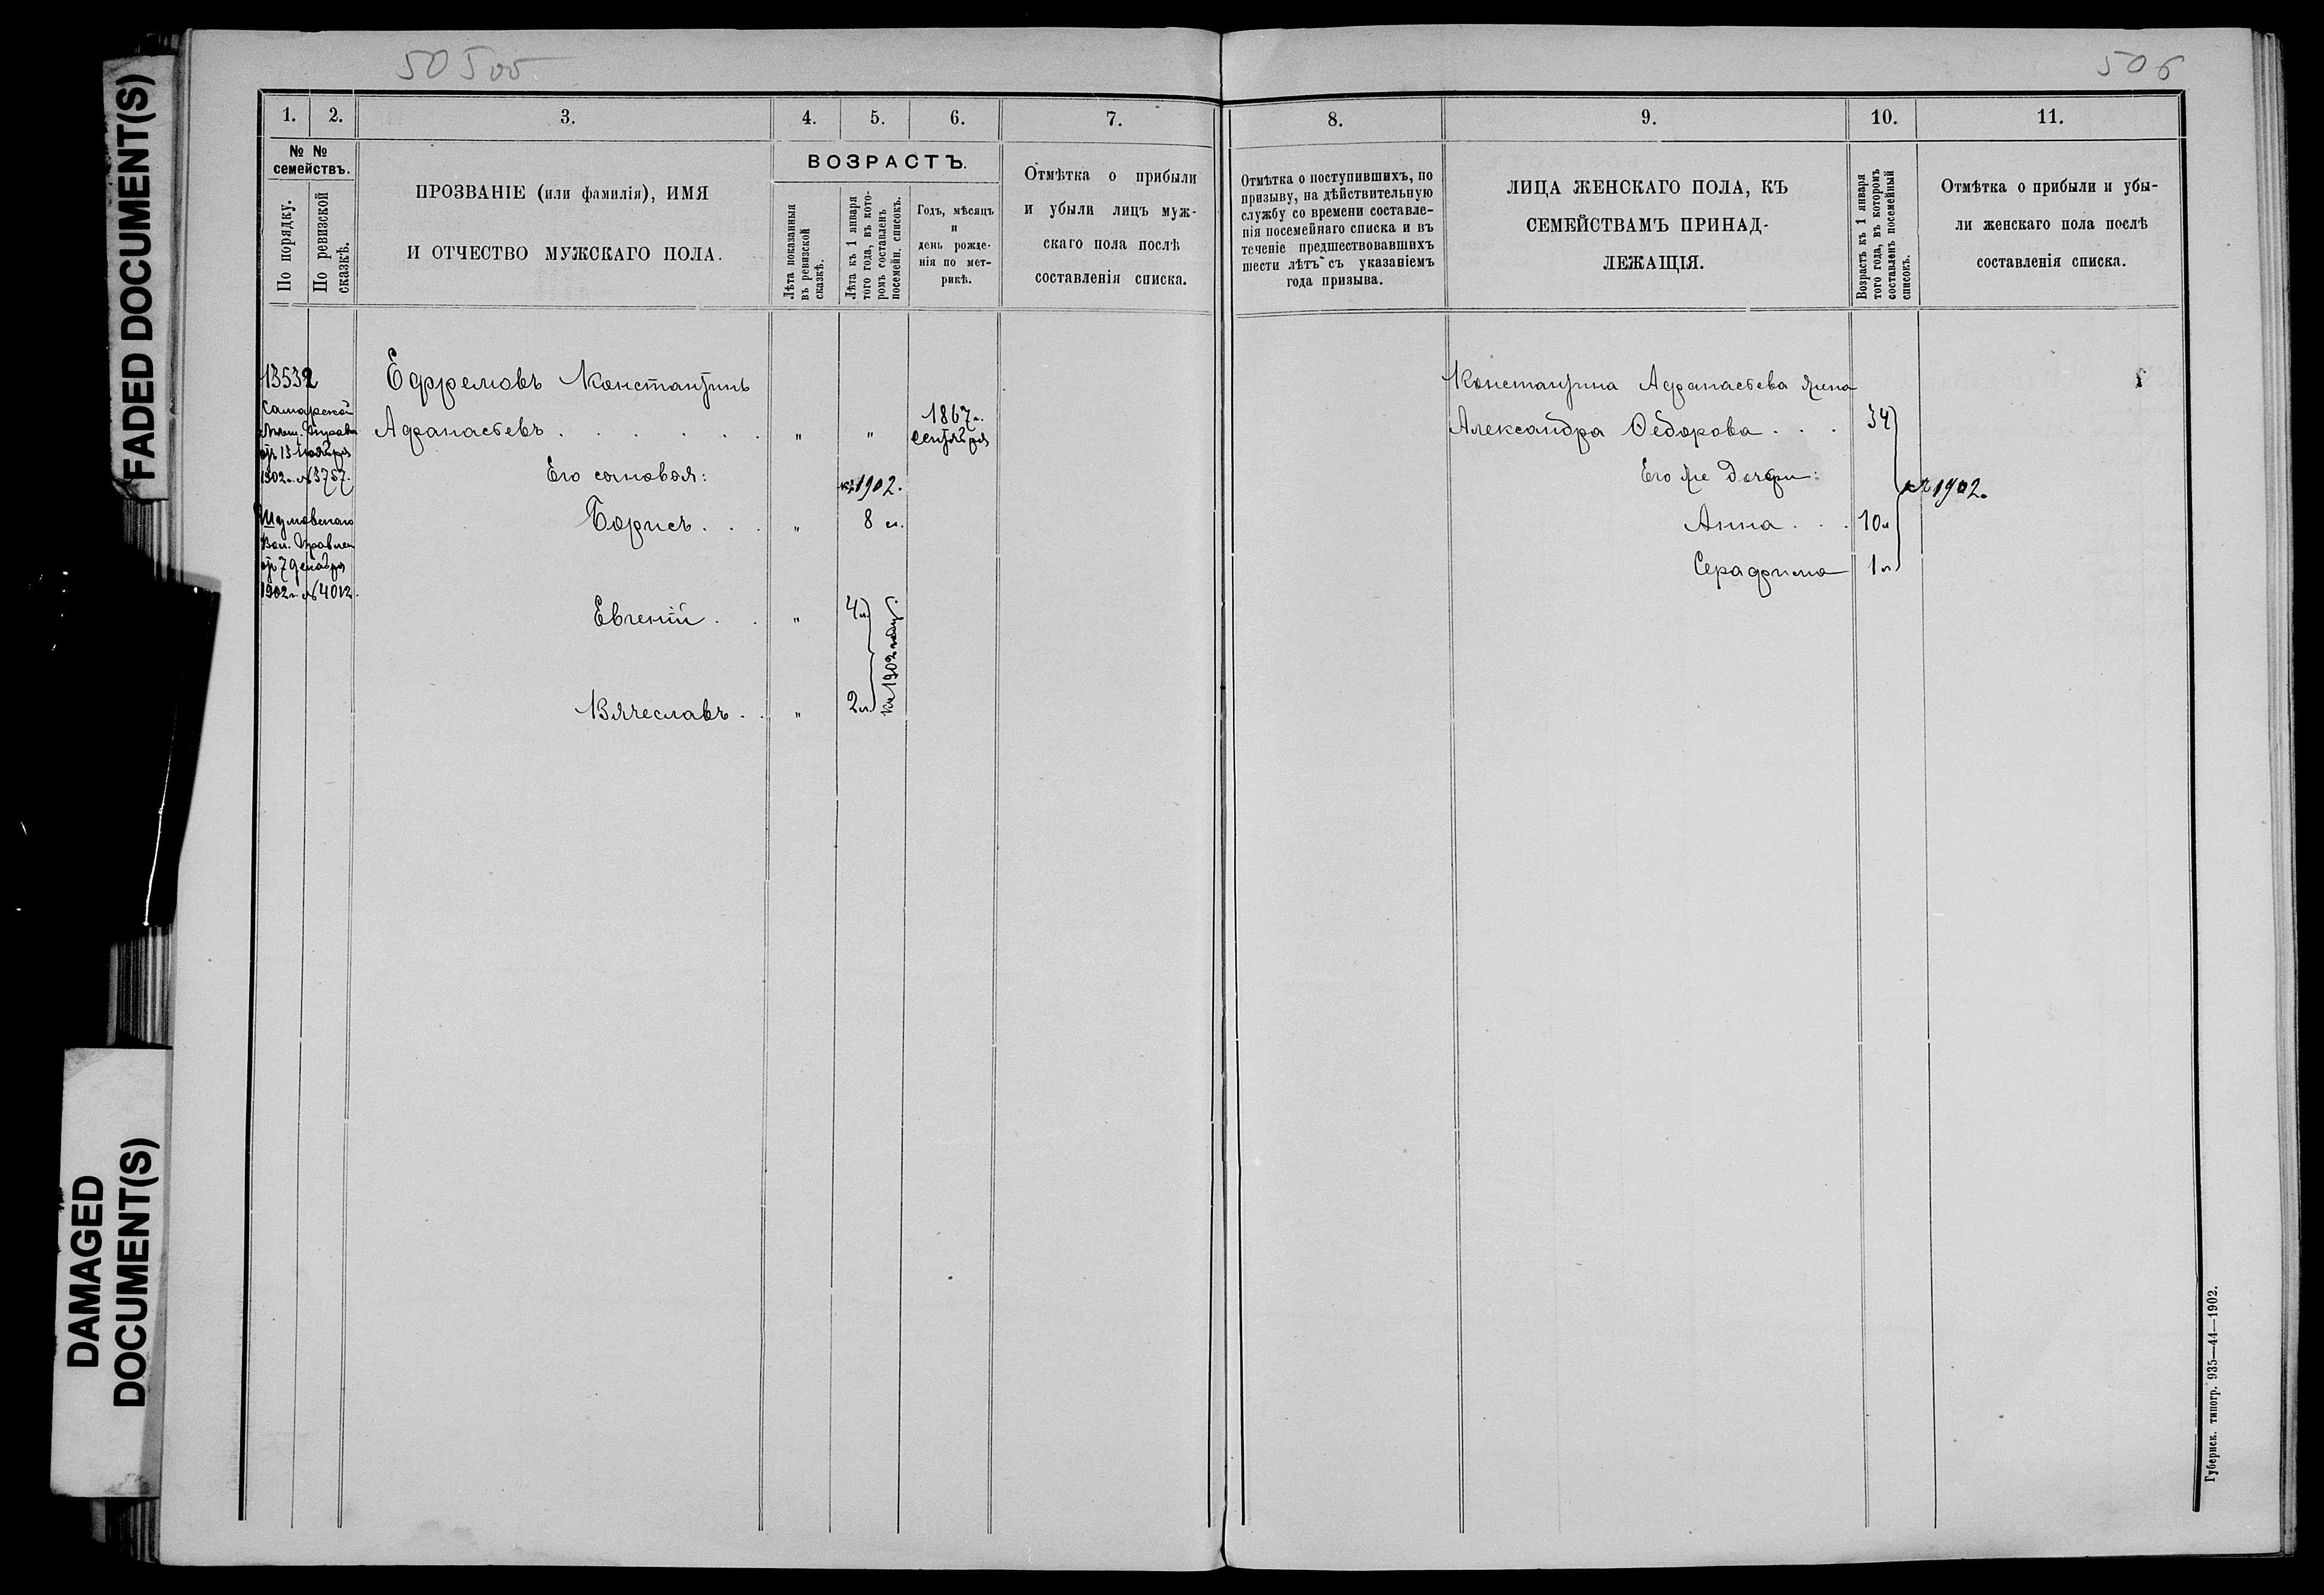 FADED DOCUMENT(S)
DAMAGED
DOCUMENT(S)
50 505
1. 2. 3. 4. 5. 6. 7.
№ №
семействъ.
По порядку.
По ревизской
сказкѣ.
ПРОЗВАНІЕ (или фамилія), ИМЯ
И ОТЧЕСТВО МУЖСКАГО ПОЛА.
ВОЗРАСТЪ.
Лѣта показанныя
въ ревизской
сказкѣ.
Лѣта къ 1 января
того года, въ кото-
ромъ составленъ
посемейн. списокъ.
Годъ, мѣсяцъ
и
день рожде-
нія по мет-
рикѣ.
Отмѣтка о прибыли
и убыли лицъ муж-
скаго пола послѣ
составленія списка.
13532
Самарской
Мѣщ. Управы
отъ 13 Ноября
1902 г. № 3757.
Вол. Правлен
отъ 7 декабря
1902 г. № 4012.
Ефремовъ Константинъ
Афанасьевъ . . . . . . " "
1867 г.
сентября
Его сыновья:
къ 1902.
Борисъ . . . " 8 л.
Евгеній . . " 4 л.
Вячеславъ . . " 2 л.
къ 1902 году.
506
8. 9. 10. 11.
Отмѣтка о поступившихъ, по
призыву, на дѣйствительную
службу со времени составле-
нія посемейнаго списка и въ
теченіе предшествовавшихъ
шести лѣтъ съ указаніемъ
года призыва.
ЛИЦА ЖЕНСКАГО ПОЛА, КЪ
СЕМЕЙСТВАМЪ ПРИНАД-
ЛЕЖАЩІЯ.
Возрастъ къ 1 января
того года, въ которомъ
составленъ посемейный
списокъ.
Отмѣтка о прибыли и убы-
ли женскаго пола послѣ
составленія списка.
Константина Афанасьева жена
Александра Ѳедорова . . . 34
Его же дочери:
къ 1902.
Анна . . . 10 л
Серафима 1 л
Губернск. типогр. 935—44—1902.